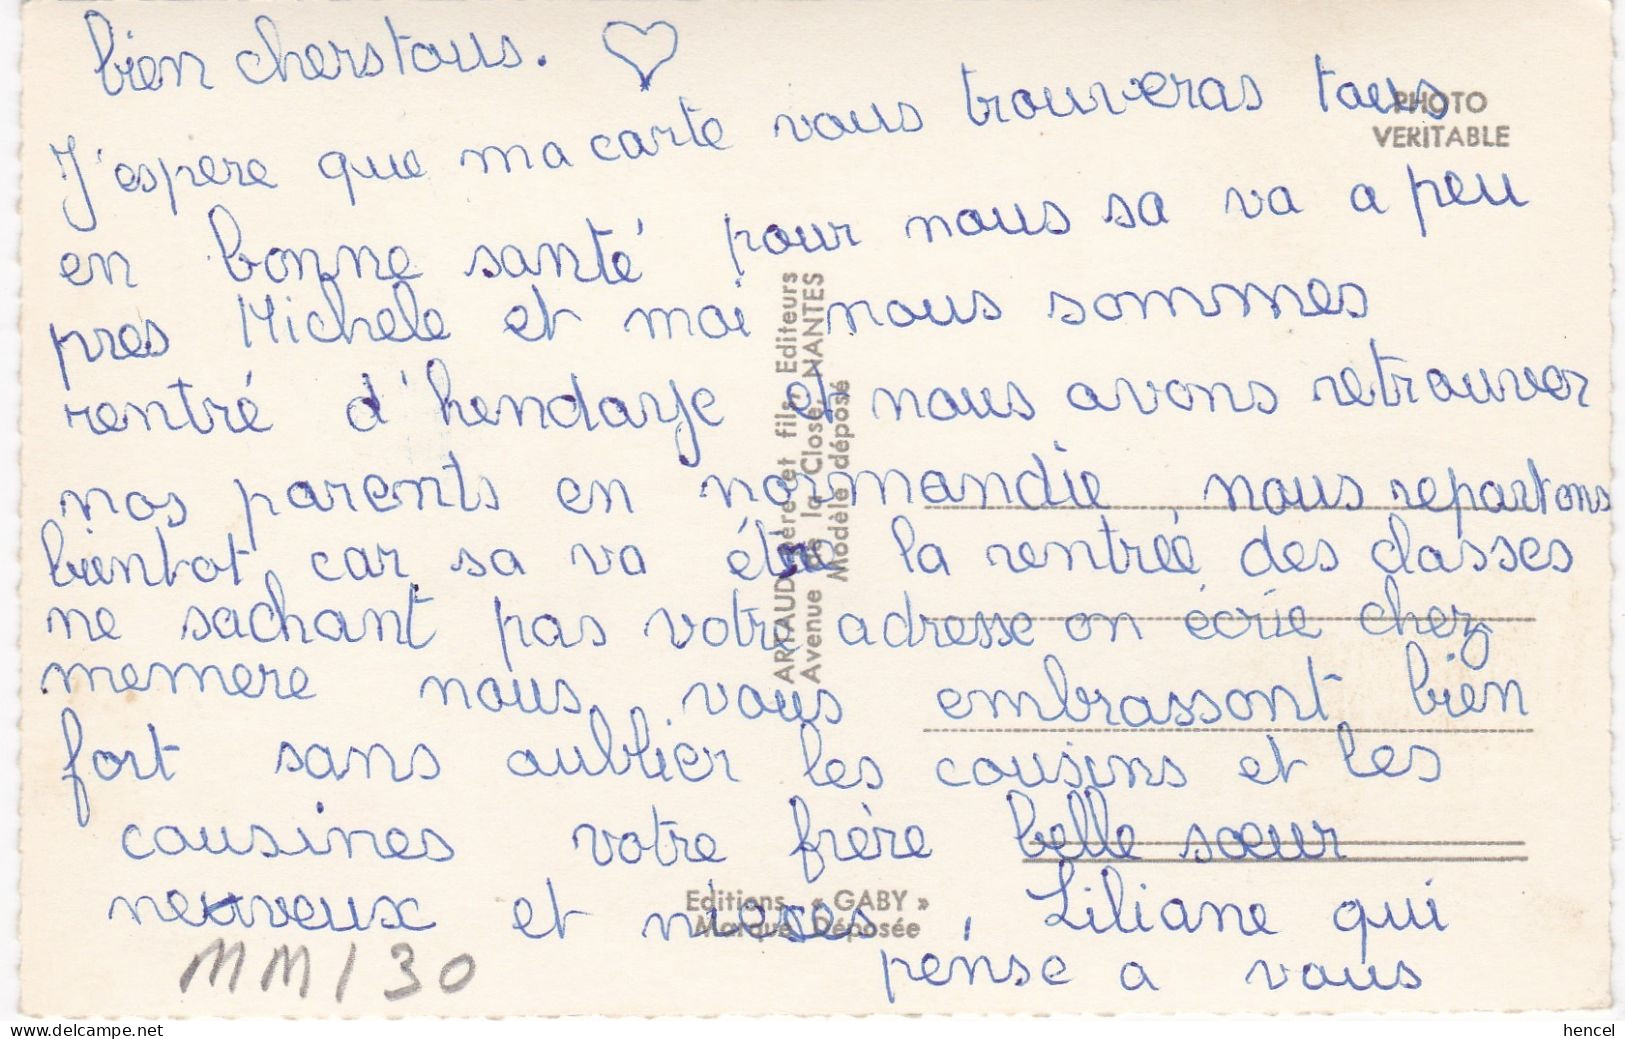 bien chers tous. ♡
J'espere que ma carte vous trouveras tous
en bonne santé pour nous sa va a peu
pres Michele et moi nous sommes
rentré d'hendaye et nous avons retrouver
nos parents en normandie, nous repartons
bientot, car sa va être la rentrée des classes
ne sachant pas votre adresse on écrie chez
memere nous vous embrassont bien
fort sans oublier les cousins et les
cousines votre frère belle sœur
neuveux et nieces, Liliane qui
pense a vous
PHOTO
VERITABLE
ARTAUD père et fils, Editeurs
Avenue de la Close, NANTES
Modèle déposé
Editions « GABY »
Marque Déposée
MM130
delcampe.net
hencel